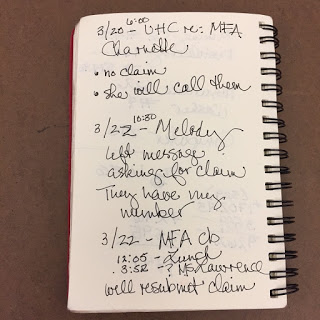 6:00
3/20 - UHC re: MFA
Charnette
• no claim
• she will call them
10:30
3/22 - Melody
left message
asking for claim
They have my
number
3/22 - MFA cb
12:05 - Lunch
3:52 - ? Ms Lawrence
will resubmit claim